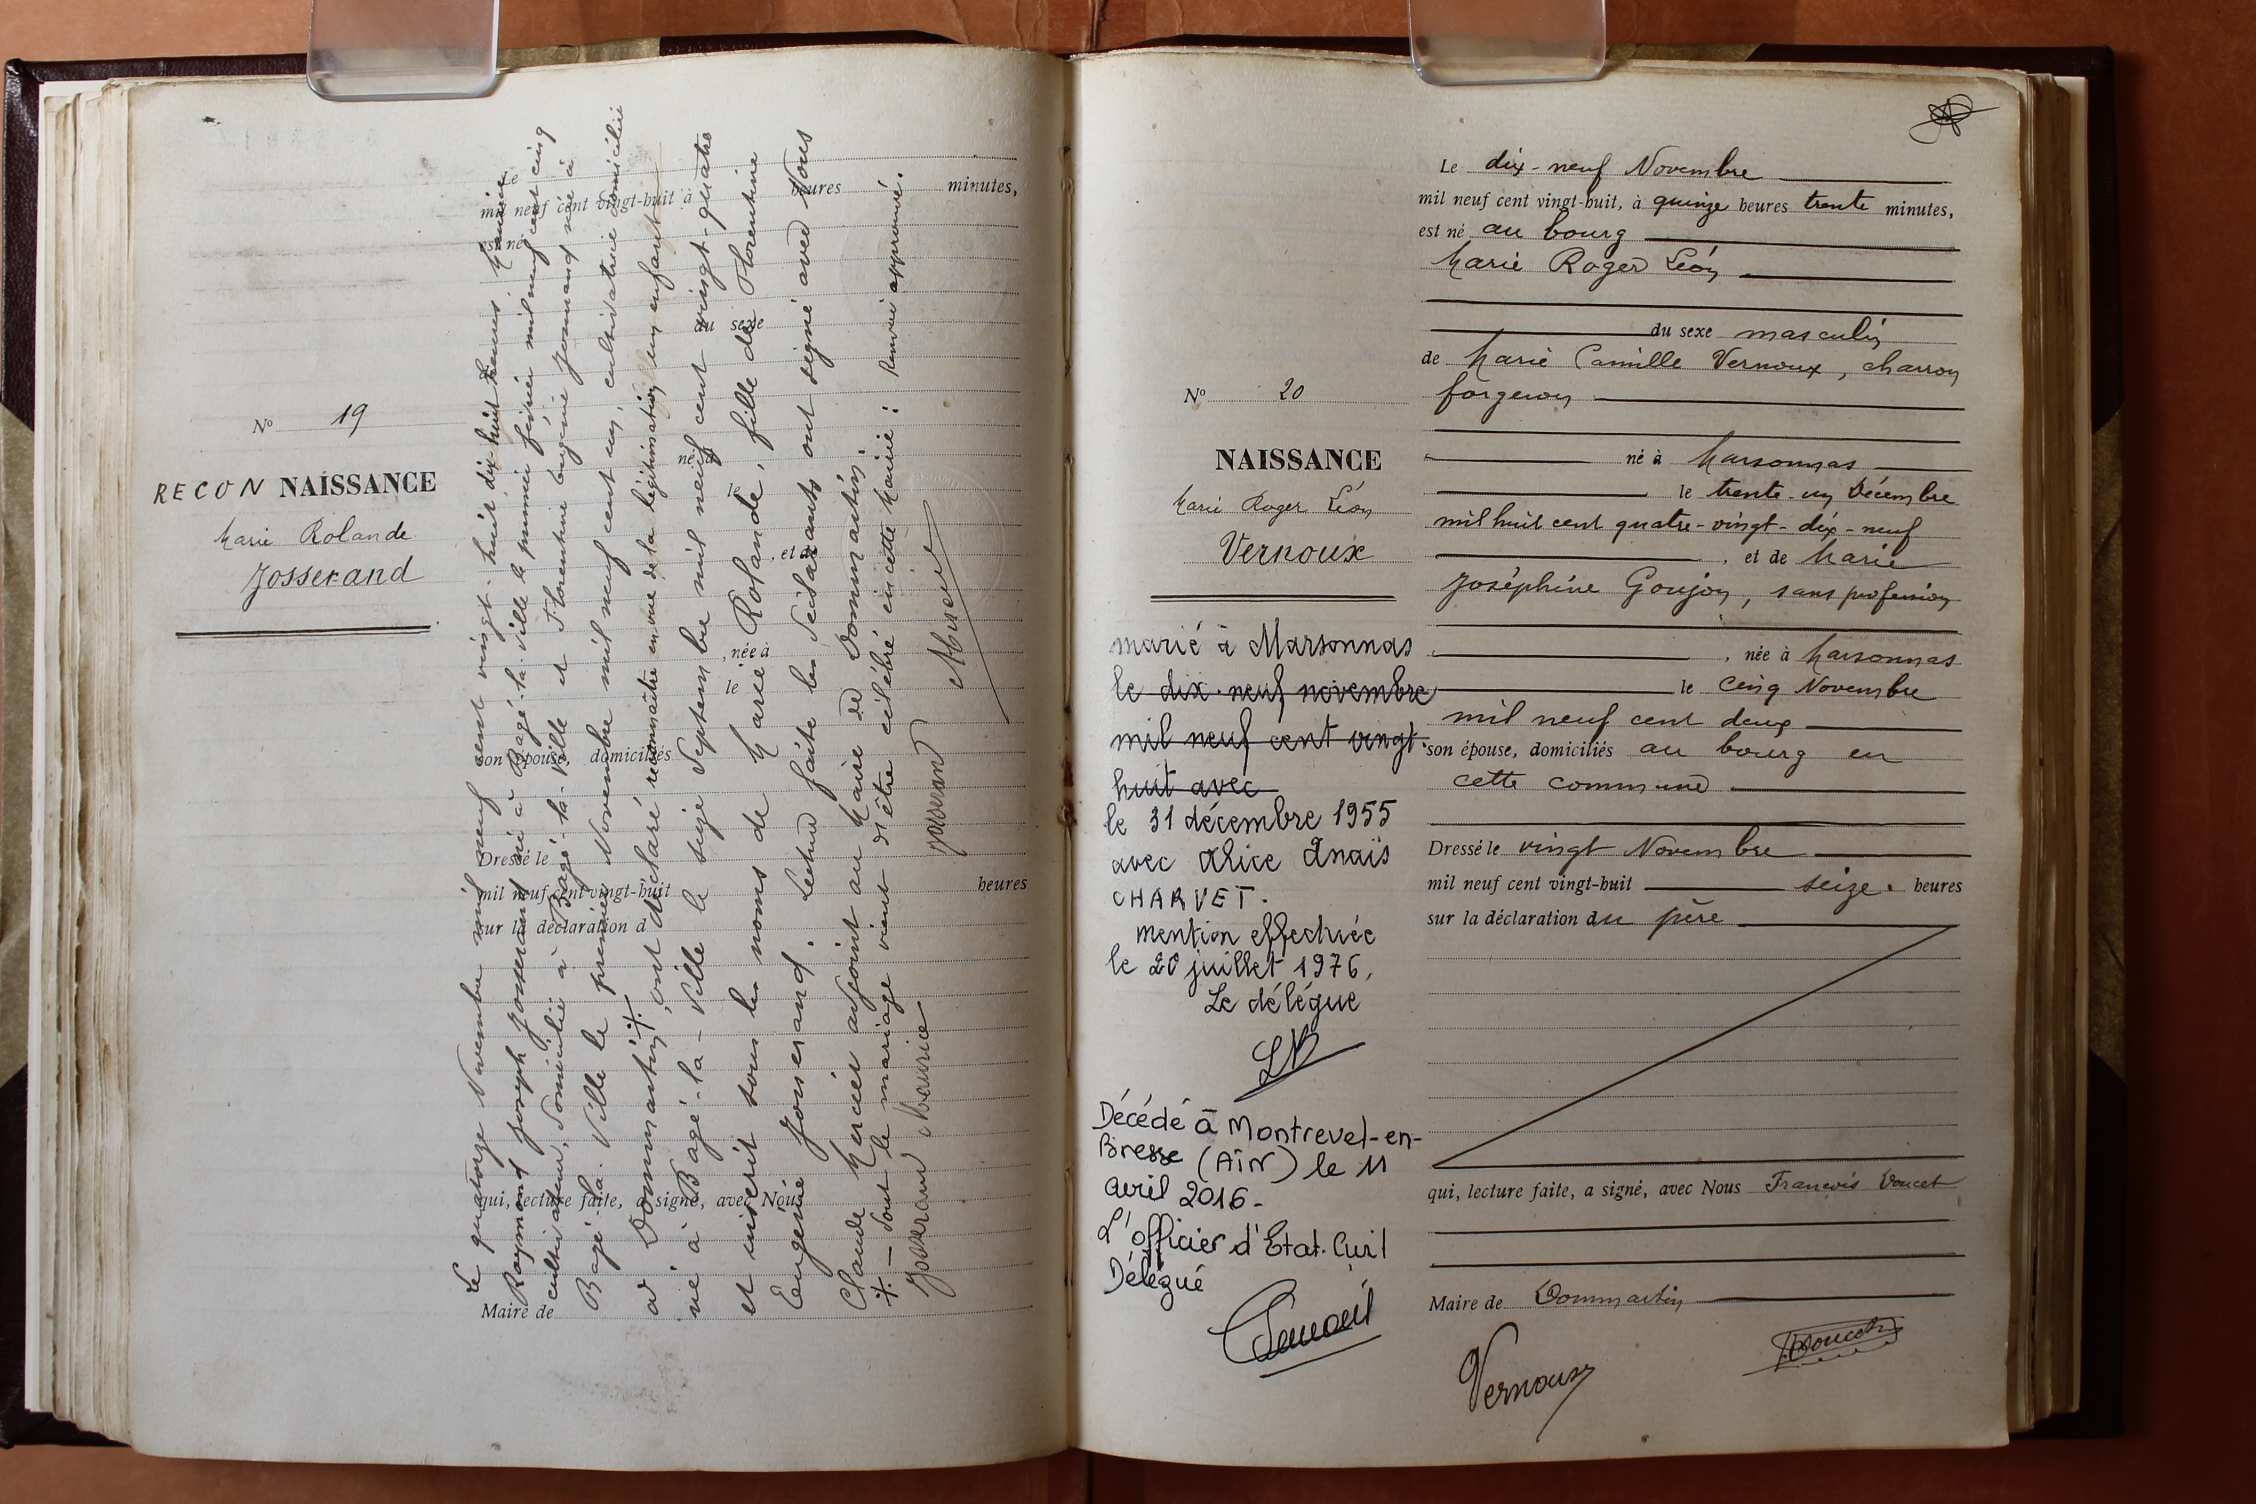 N° 19
RECON NAISSANCE
Marie Rolande
Josserand
Le
mil neuf cent vingt-huit à heures minutes,
est né
du sexe
né à
le
, et de
, née à
le
son épouse, domiciliés
Dressé le
mil neuf cent vingt-huit heures
sur la déclaration d
qui, lecture faite, a signé, avec Nous
Maire de
Le quatorze Novembre mil neuf cent vingt-huit dix-huit heures, Maurice
Raymond Joseph Josserand né à Bagé-la-Ville le premier février mil neuf cent cinq
cultivateur, domicilié à Bagé-la-Ville et Florentine Eugénie Jomand née à
Bagé-la-Ville le premier Novembre mil neuf cent un, cultivatrice domiciliée
à Dommartin, ⁒ ont déclaré reconnaître en vue de la légitimation un enfant
né à Bagé-la-Ville le seize Septembre mil neuf cent vingt-quatre
et inscrit sous les noms de Marie Rolande, fille de Florentine
Eugénie Josserand. Lecture faite les déclarants ont signé avec Nous
Claude Mercier adjoint au Maire de Dommartin.
⁒ — dont le mariage vient d'être célébré en cette Mairie: Renvoi approuvé.
Josserand Maurice Josserand Mercier
N° 20
NAISSANCE
Marie Roger Léon
Vernoux
marié à Marsonnas
le dix-neuf novembre
mil neuf cent vingt-
huit avec
le 31 décembre 1955
avec Alice Anaïs
CHARVET.
mention effectuée
le 20 juillet 1976,
Le délégué
Décédé à Montrevel-en-
Bresse (AIN) le 11
avril 2016-
L'officier d'Etat-Civil
Délégué
Le dix-neuf Novembre
mil neuf cent vingt-huit, à quinze heures trente minutes,
est né au bourg
Marie Roger Léon
du sexe masculin
de Marie Camille Vernoux, charron
forgeron
né à Marsonnas
le trente-un Décembre
mil huit cent quatre-vingt-dix-neuf
, et de Marie
Joséphine Goujon, sans profession
, née à Marsonnas
le cinq Novembre
mil neuf cent deux
son épouse, domiciliés au bourg en
cette commune
Dressé le vingt Novembre
mil neuf cent vingt-huit seize heures
sur la déclaration du père
qui, lecture faite, a signé, avec Nous François Doucet
Maire de Dommartin
Vernoux Doucet